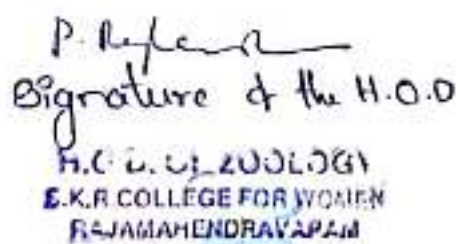 Signature of the H.O.D
ZOOLOGY
S.K.R COLLEGE FOR WOMEN
RAJAMAHENDRAVARAM